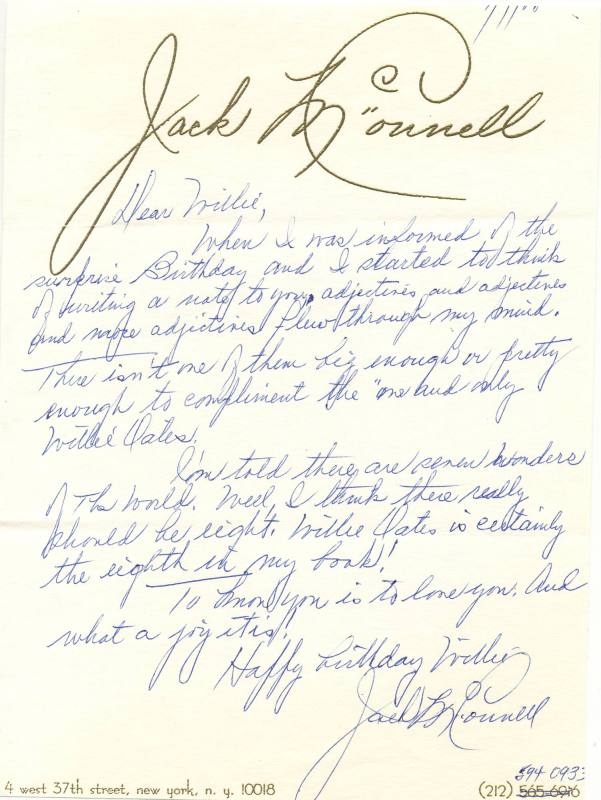 Jack McConnell
Dear Willie,
When I was informed of the
surprise Birthday and I started to think
of writing a note to you, adjectives and adjectives
and more adjectives flew through my mind.
There isn't one of them big enough or pretty
enough to compliment the "one and only
Willie Oates.
I'm told there are seven wonders
of The World. Well, I think there really
should be eight. Willie Oates is certainly
the eighth in my book!
To know you is to love you. And
what a joy it is!
Happy birthday Willie
Jack McConnell
594 0933
4 west 37th street, new york, n. y. 10018
(212) 565-6916